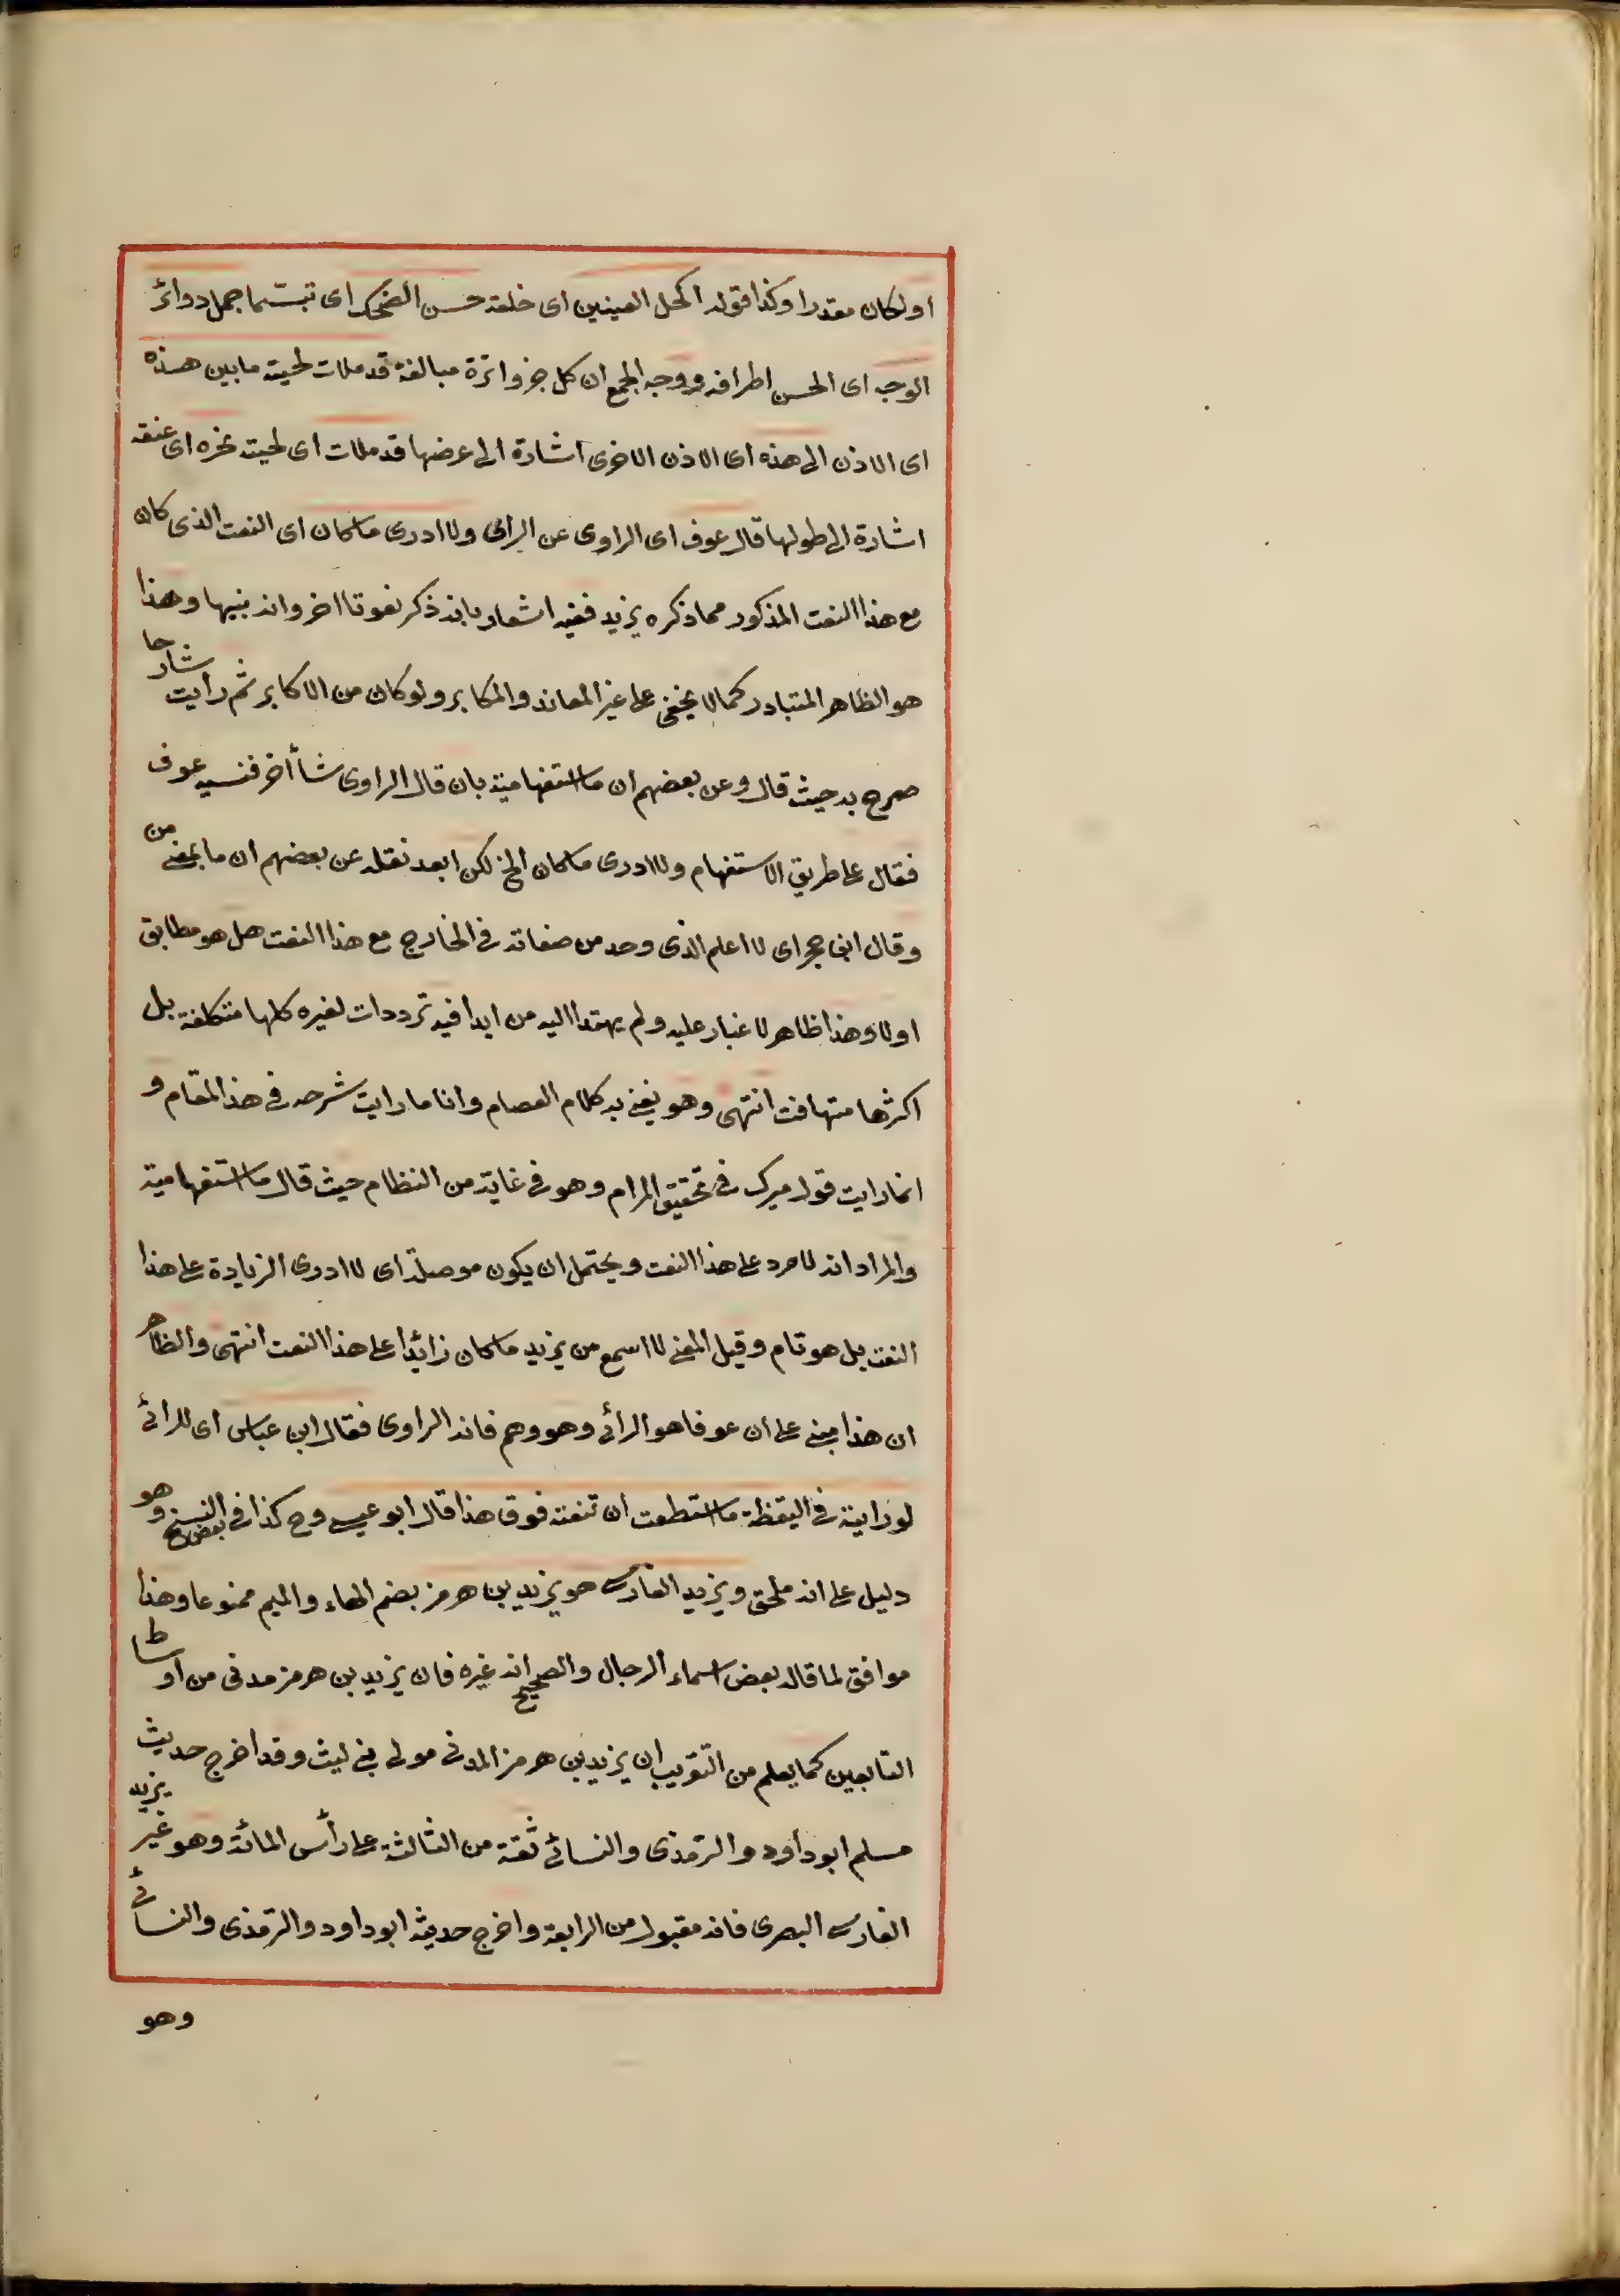 او لكان مقدرا وكذا قوله اكحل العينين اى خلقة حسن الضحك اى تبسما جميل دوائر
الوجه اى الحسن اطرافه ووجه الجمع ان كل جزء دائرة مبالغة قد ملات لحيته ما بين هذه
اى الاذن الى هذه اى الاذن الاخرى اشارة الى عرضها قد ملات اى لحيته نحره اى عنقه
اشارة الى طولها قال عوف اى الراوى عن الرائى ولا ادرى ما كان اى النعت الذى كان
مع هذا النعت المذكور مما ذكره يزيد ففيه اشعار بانه ذكر نعوتا اخر وانه نسيها وهذا
هو الظاهر المتبادر كما لا يخفى على غير المعاند والمكابر ولو كان من الاكابر ثم رأيت شارحا
صرح به حيث قال وعن بعضهم ان ما استفهامية بان قال الراوى شأ أخر فنسيه عوف
فقال على طريق الاستفهام ولا ادرى ما كان الخ لكن ابعد نقله عن بعضهم ان ما بمعنى من
وقال ابن حجر اى لا اعلم الذى وجد من صفاته فى الخارج مع هذا النعت هل هو مطابق
او لا وهذا ظاهر لا غبار عليه ولم يهتد اليه من ابدا فيه ترددات لغيره كلها متكلفة بل
اكثرها متهافت انتهى وهو يعنى به كلام العصام وانا ما رايت شرحه فى هذا المقام و
انما رايت قول ميرك فى تحقيق المرام وهو فى غاية من النظام حيث قال ما استفهامية
والمراد انه لا مرد على هذا النعت ويحتمل ان يكون موصلة اى لا ادرى الزيادة على هذا
النعت بل هو تام وقيل المعنى لا اسمع من يزيد ما كان زائدا على هذا النعت انتهى والظاهر
ان هذا مبنى على ان عوفا هو الرائى وهو وهم فانه الراوى فقال ابن عباس اى للرائى
لو رايته فى اليقظة ما استطعت ان تنعته فوق هذا قال ابو عيسى وح كذا فى بعض النسخ وهو
دليل على انه ملحق ويزيد الفارسى هو يزيد بن هرمز بضم الهاء والميم ممنوعا وهذا
موافق لما قاله بعض اسماء الرجال والصحيح انه غيره فان يزيد بن هرمز مدنى من اوساط
التابعين كما يعلم من التقريب ان يزيد بن هرمز المدنى مولى بنى ليث وقد اخرج حديث
مسلم ابو داود والترمذى والنسائى ثقة من الثالثة على رأس المائة وهو غير يزيد
الفارسى البصرى فانه مقبول من الرابعة واخرج حديثه ابو داود والترمذى والنسائى
وهو